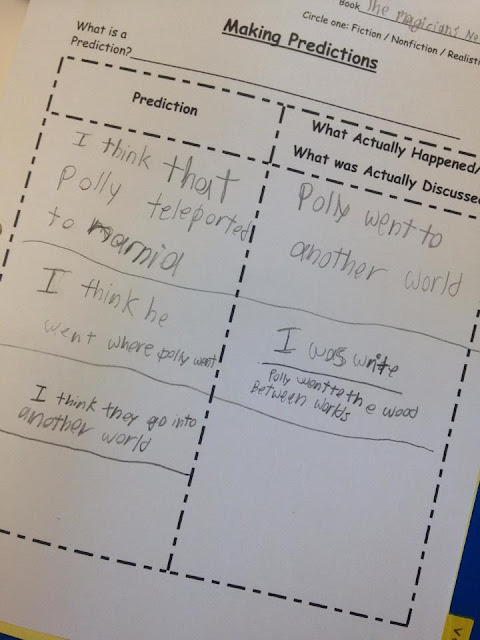 Book The Magicians Ne
Circle one: Fiction / Nonfiction / Realisti
Making Predictions
What is a
Prediction?
Prediction
What Actually Happened/
What was Actually Discussed
I think that
Polly teleported
to narnia
Polly went to
another world
I think he
went where polly went
I was write
Polly went to the wood
Between worlds
I think they go into
another world